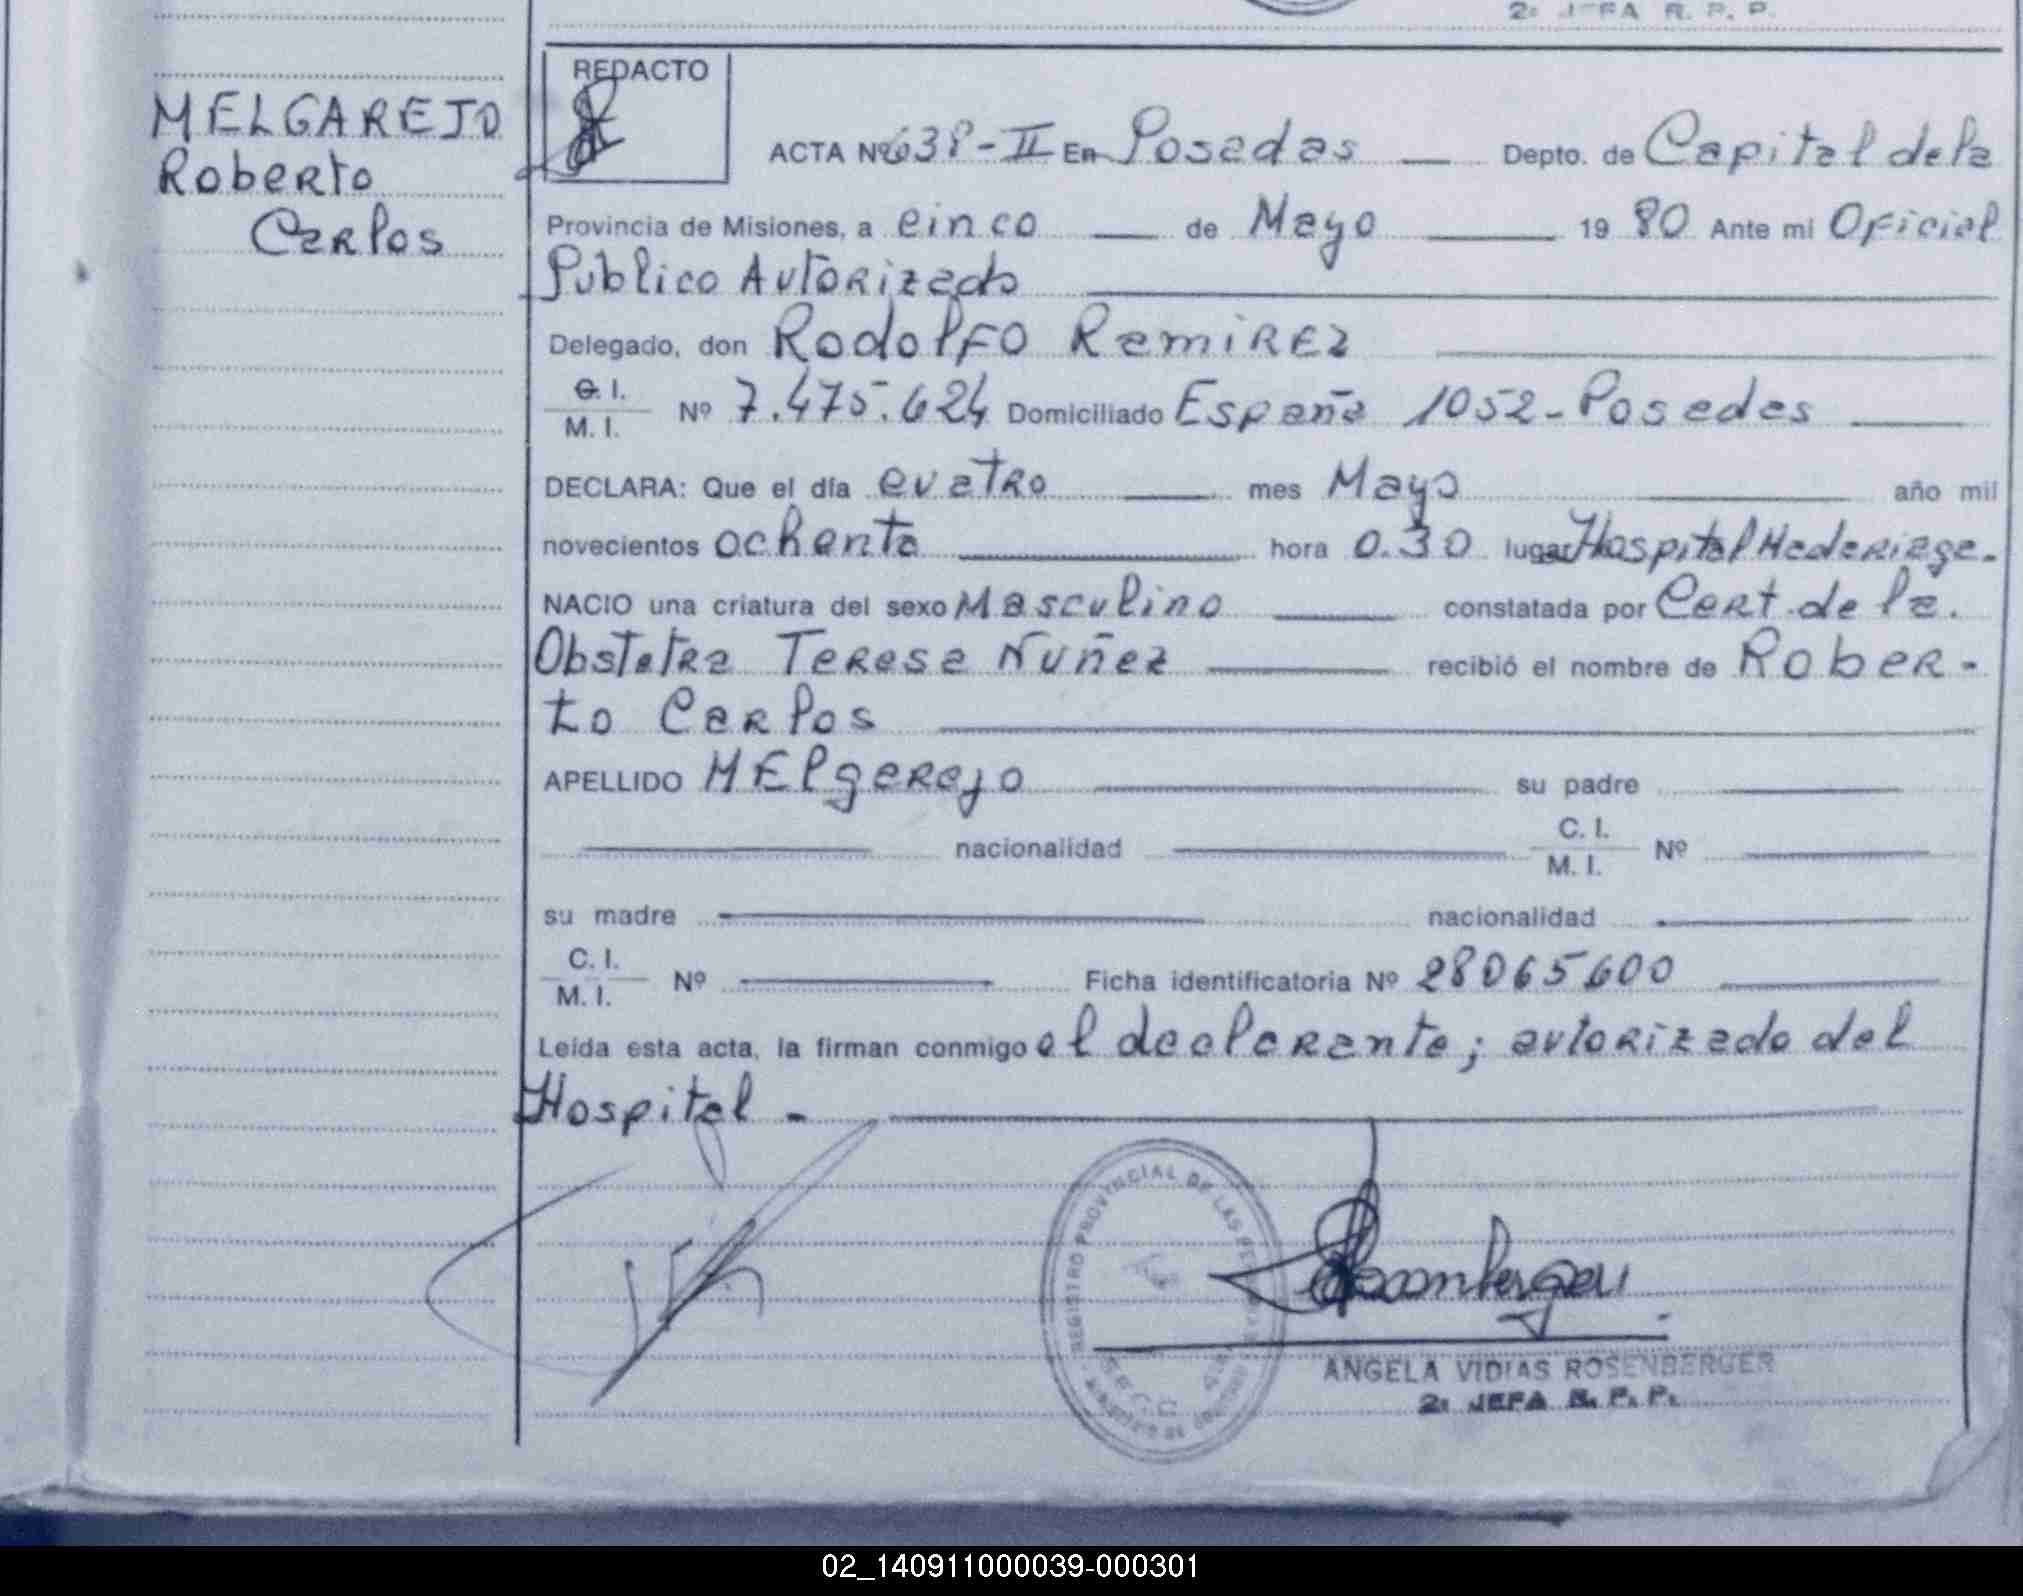 2º JEFA R. P. P.
MELGAREJO
Roberto
Carlos
REDACTO
ACTA Nº 638-II En Posadas Depto. de Capital de la
Provincia de Misiones, a cinco de Mayo 19 80 Ante mi Oficial
Publico Autorizado
Delegado, don Rodolfo Ramirez
C. I.
M. I. Nº 7.475.624 Domiciliado España 1052-Posadas
DECLARA: Que el día cuatro mes Mayo año mil
novecientos ochenta hora 0.30 lugar Hospital Madariaga.
NACIO una criatura del sexo Masculino constatada por Cert. de la.
Obstetra Teresa Nuñez recibió el nombre de Rober-
to Carlos
APELLIDO MElgarejo su padre
nacionalidad C. I. M. I. Nº
su madre nacionalidad
C. I.
M. I. Nº Ficha identificatoria Nº 28065600
Leída esta acta, la firman conmigo el declarante; autorizado del
Hospital -
REGISTRO PROVINCIAL DE LAS
ANGELA VIDIAS ROSENBERGER
2º JEFA R. P. P.
02_140911000039-000301